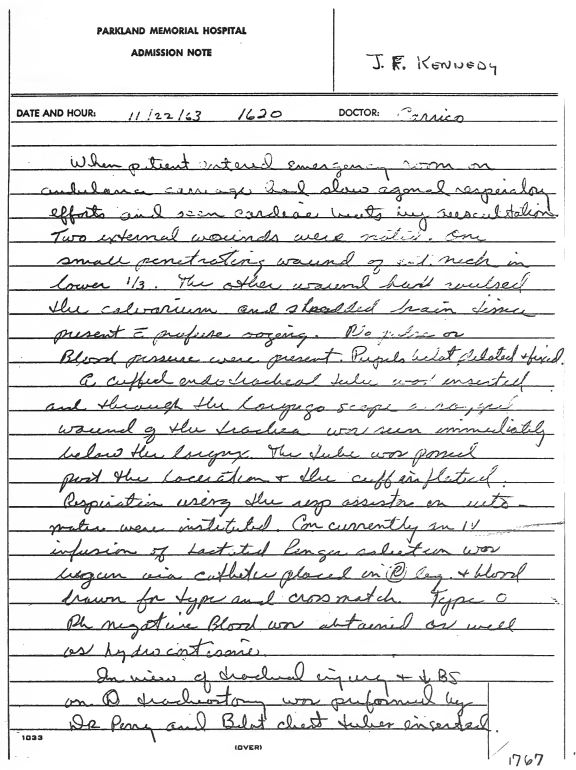 PARKLAND MEMORIAL HOSPITAL
ADMISSION NOTE
J. F. KENNEDY
DATE AND HOUR: 11/22/63 1620 DOCTOR: Carrico
When patient entered emergency room on
ambulance carriage had slow agonal respiratory
efforts and scan cardiac beats by auscultation.
Two external wounds were noted. One
small penetrating wound of ant. neck in
lower 1/3. The other wound had
the calvarium and shredded brain tissue
present c̄ profuse oozing. No pulse or
Blood pressure were present. Pupils bilat dilated + fixed.
A cuffed endotracheal tube was inserted
and through the laryngo scope a ragged
wound of the trachea was seen immediately
below the larynx. The tube was passed
past the laceration + the cuff inflated.
Respiration using the resp assistor on auto-
matic were instituted. Concurrently an IV
infusion of lactated Ringer solution was
begun via catheter placed in Ⓡ leg + blood
drawn for type and crossmatch. Type O
Rh negative Blood was obtained as well
as hydrocortisone.
In view of tracheal injury + ↓ BS
on Ⓡ tracheostomy was preformed by
Dr Perry and Bilat chest tubes inserted.
1033
(OVER)
1767